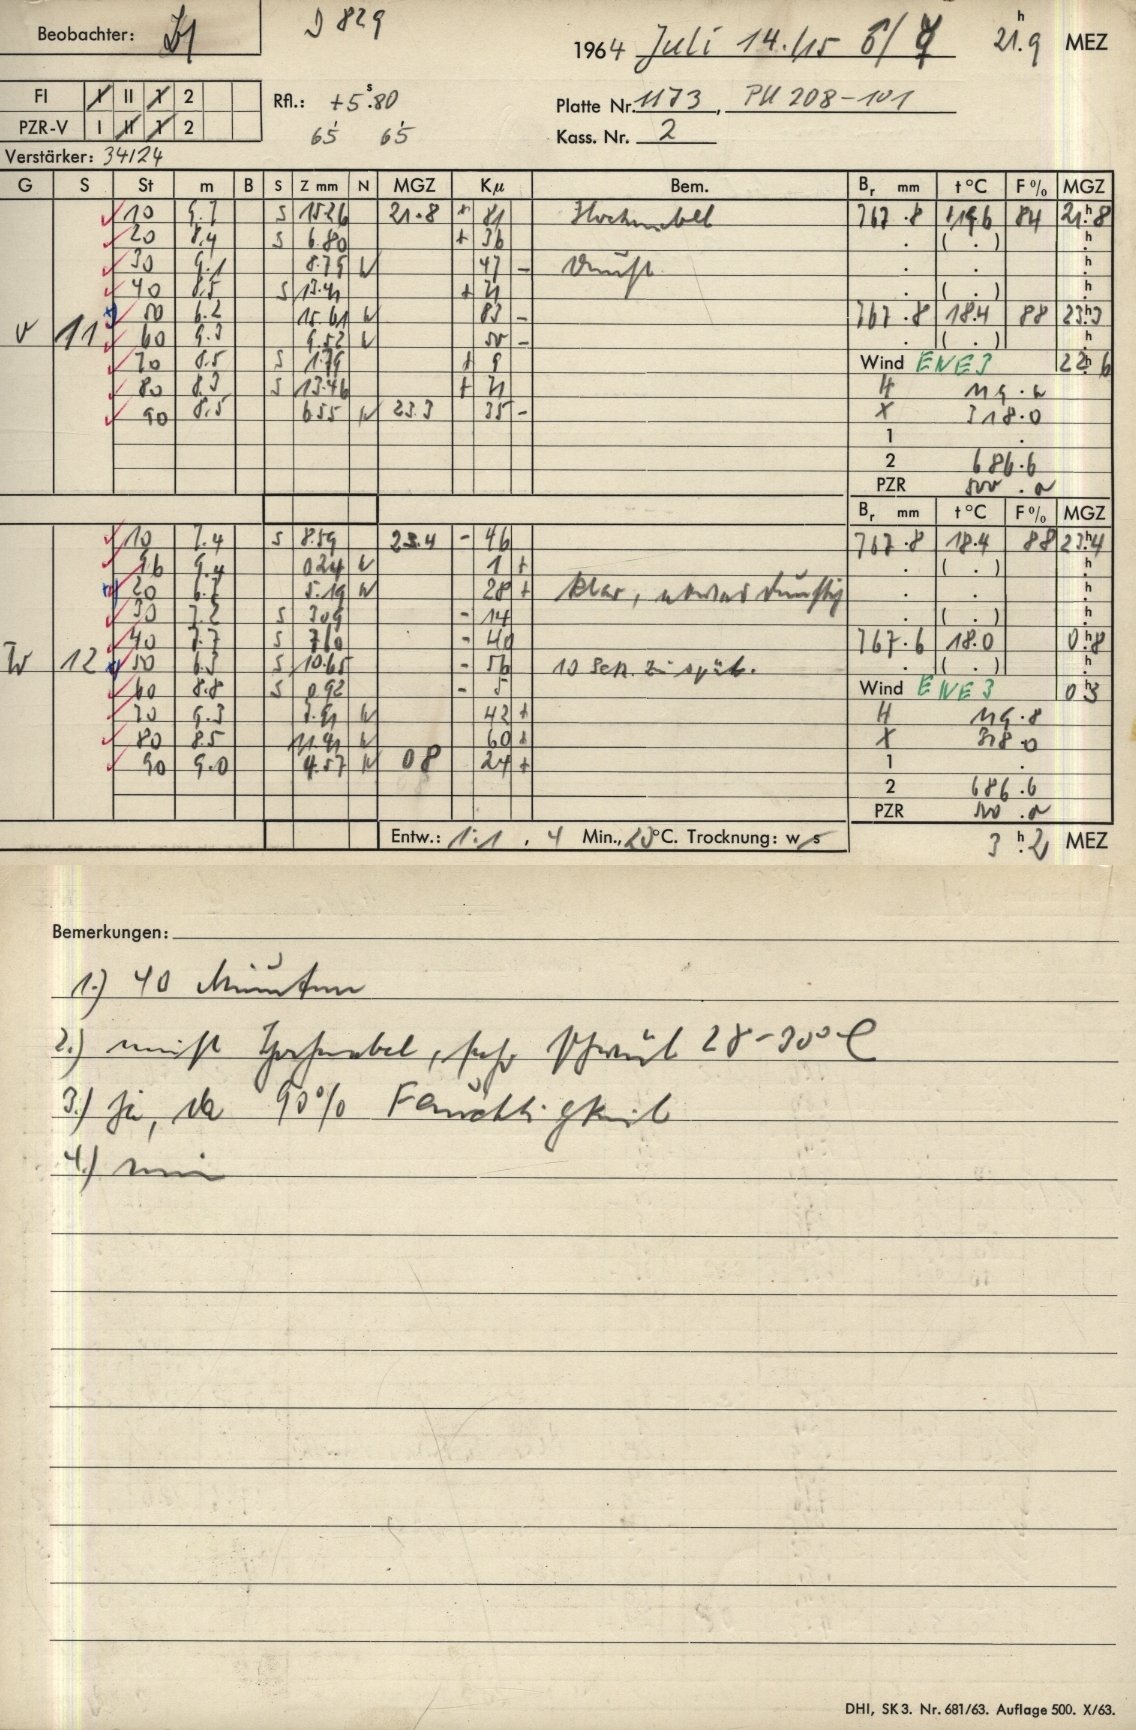 Beobachter:
D 829
1964 Juli 14./15 21.h9 MEZ
FI I II 1 2
PZR-V I II 1 2
Rfl.: +5.s80
65 65
Platte Nr. 1173, PU 208-101
Kass. Nr. 2
Verstärker: 34/24
G S St m B S Z mm N MGZ Kμ Bem. Br mm t °C F % MGZ
10 9.7 S 15.26 21.8 + 81 Hochnebel 767.8 +19.6 84 21.h8
20 8.4 S 6.80 + 36 . ( . ) h
30 9.1 8.79 W 47 - Dunst . . h
40 8.5 S + . ( . ) h
50 6.2 15.61 W 83 - 767.8 18.4 88 23.h3
V 11 60 9.3 9.52 W 50 - . ( . ) h
70 8.5 S 1.79 + 9 Wind ENE 3 22.h6
80 8.3 S 13.46 + 71 H
90 8.5 6.55 W 23.3 35 - X 318.0
1 .
2 686.6
PZR
Br mm t °C F % MGZ
10 7.4 S 8.59 23.4 - 46 767.8 18.4 88 23.h4
16 9.4 0.24 W 1 + . ( . ) h
20 5.19 W 28 + klar, etwas dunstig . . h
30 7.2 S 3.09 - 14 . ( . ) h
40 7.7 S 7.60 - 40 767.6 18.0 0.h8
W 12 50 6.3 S 10.65 - 56 10 Sek. zu spät. . ( . ) h
60 8.8 S 0.92 - 5 Wind ENE 3 0.h3
70 9.3 7.91 W 42 + H 119.8
80 8.5 11.41 W 60 + X 318.0
90 9.0 4.57 W 0.8 24 + 1 .
2 686.6
PZR
Entw.: 1:1, 4 Min., 20°C. Trocknung: w/s 3.h2 MEZ
Bemerkungen:
1.) 40 Minuten
2.) meist Hochnebel, sehr schwül 28-30°C
3.) ja, da 90% Feuchtigkeit
4.) nein
DHI, SK 3. Nr. 681/63. Auflage 500. X/63.